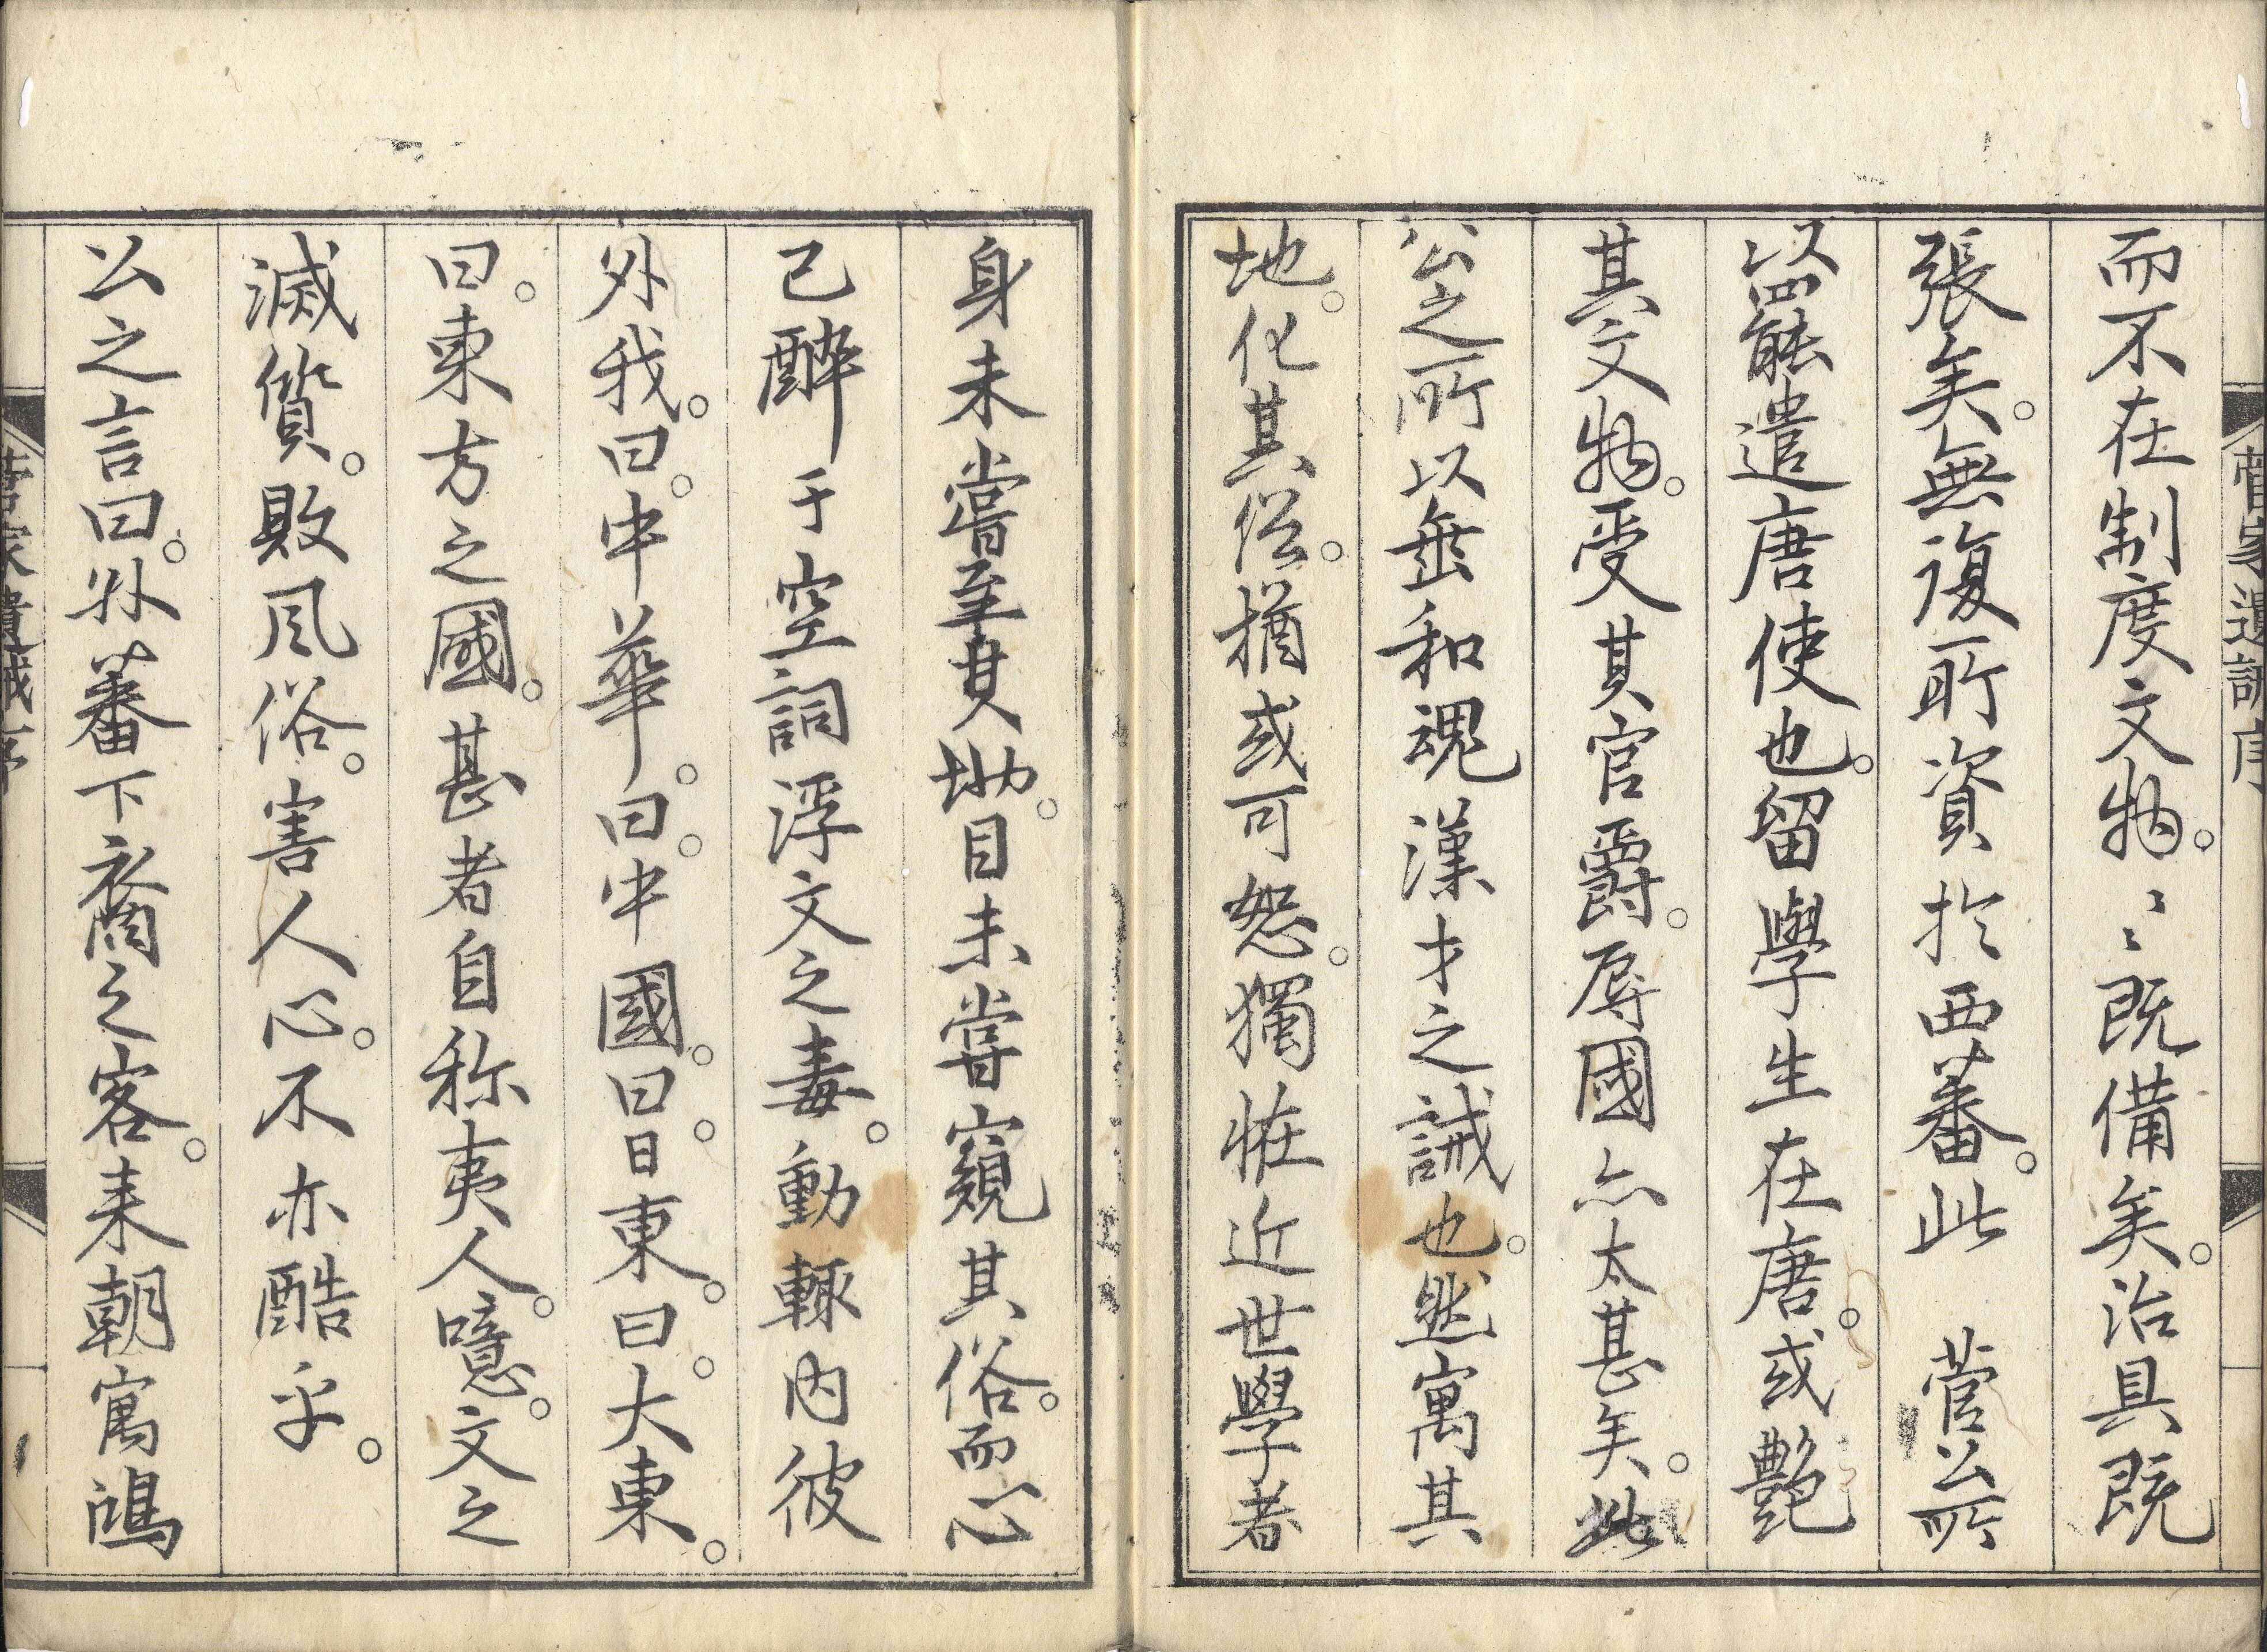 菅家遺誡序
而不在制度文物。〻〻既備矣。治具既
張矣。無復所資於西蕃。此　菅公所
以罷遣唐使也。留學生在唐。或艶
其文物。受其官爵。辱國亦太甚矣。此
公之所以垂和魂漢才之誡也。然寓其
地。化其俗。猶或可恕。獨恠近世學者
身未嘗至其地。目未嘗窺其俗。而心
已酔于空詞浮文之毒。動輙内彼
外我。曰。中華。曰。中國。曰。日東。曰。大東。
曰。東方之國。甚者自称夷人。噫。文之
滅質。敗风俗。害人心。不亦酷乎。
公之言曰。外蕃下裔之客。来朝寓鴻
菅家遺誡序